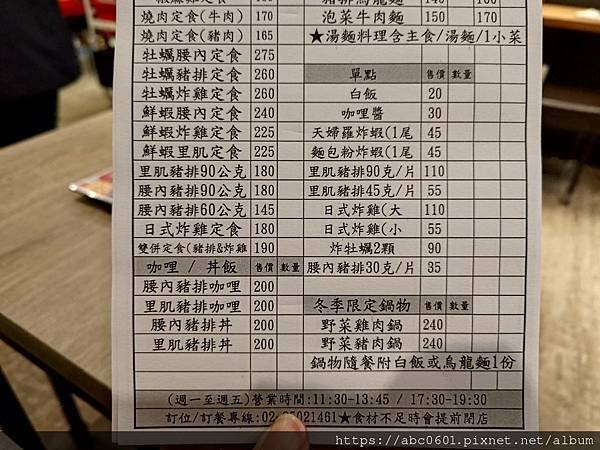 燒肉定食(牛肉) 170
燒肉定食(豬肉) 165
牡蠣腰內定食 275
牡蠣豬排定食 260
牡蠣炸雞定食 260
鮮蝦腰內定食 240
鮮蝦炸雞定食 225
鮮蝦里肌定食 225
里肌豬排90公克 180
腰內豬排90公克 180
腰內豬排60公克 145
日式炸雞定食 180
雙併定食(豬排&炸雞 190
咖哩 / 丼飯 售價 數量
腰內豬排咖哩 200
里肌豬排咖哩 200
腰內豬排丼 200
里肌豬排丼 200
泡菜牛肉麵 150 170
★湯麵料理含主食/湯麵/1小菜
單點 售價 數量
白飯 20
咖哩醬 30
天婦羅炸蝦(1尾 45
麵包粉炸蝦(1尾 45
里肌豬排90克/片 110
里肌豬排45克/片 55
日式炸雞(大 110
日式炸雞(小 55
炸牡蠣2顆 90
腰內豬排30克/片 35
冬季限定鍋物 售價 數量
野菜雞肉鍋 240
野菜豬肉鍋 240
鍋物隨餐附白飯或烏龍麵1份
(週一至週五)營業時間:11:30-13:45 / 17:30-19:30
訂位/訂餐專線:02- 5021461★食材不足時會提前閉店
https://abc0601.pixnet.net/album